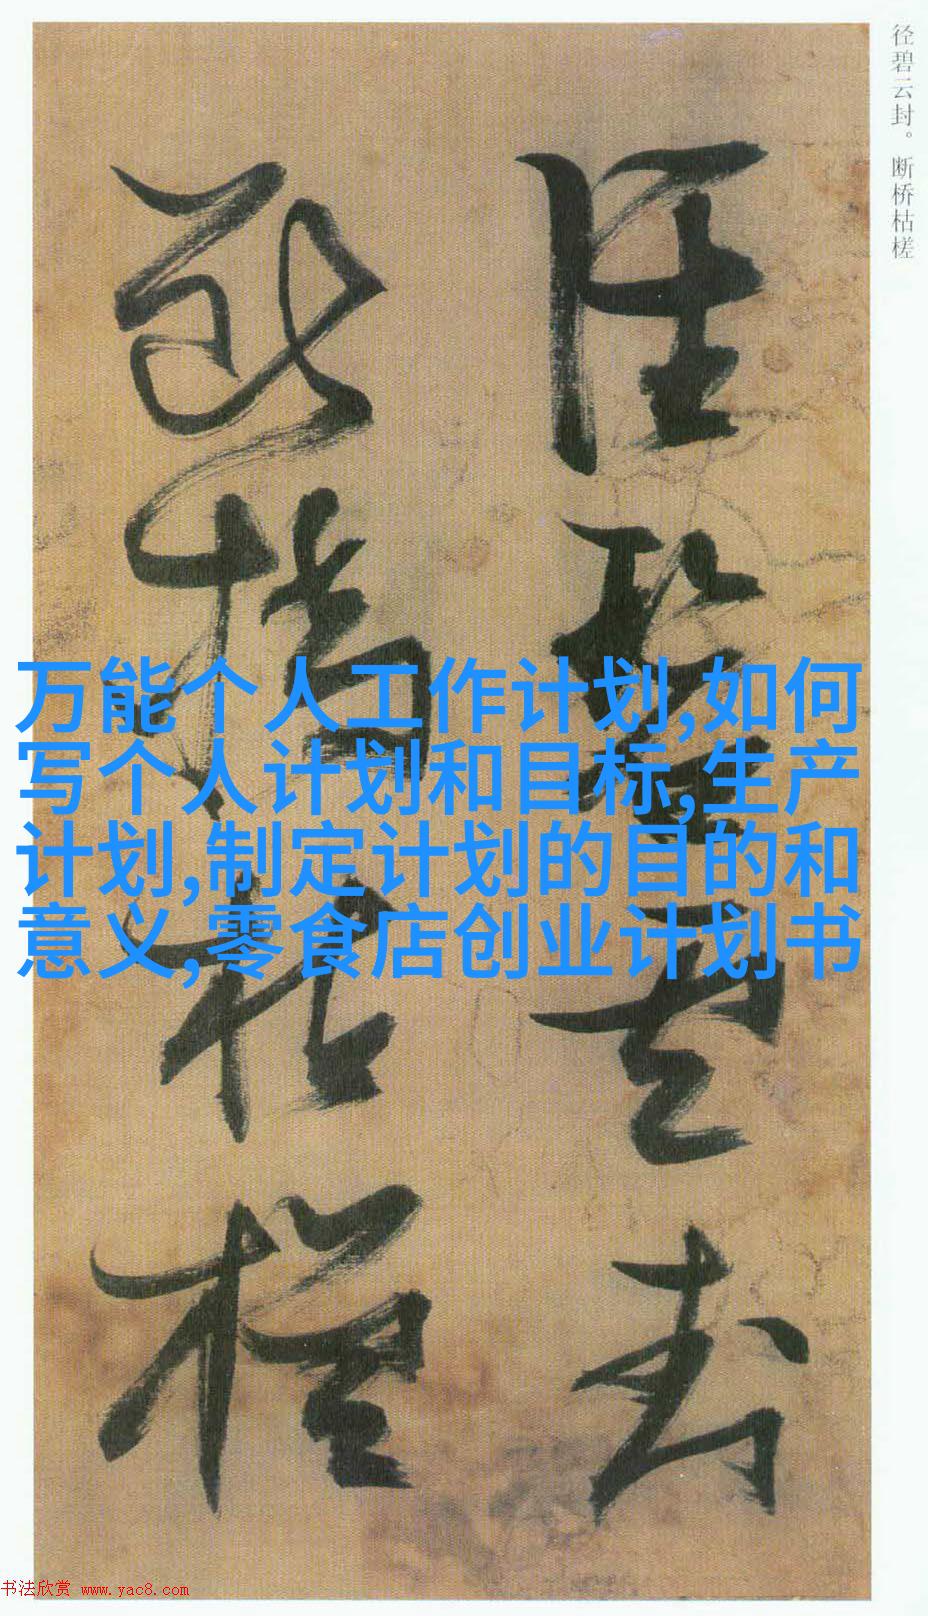 径碧云封。断桥枯槎
径碧云封
断桥枯槎
万能个人工作计划,如何
写个人计划和目标,生产
计划,制定计划的目的和
意义,零食店创业计划书
书法欣赏 www.yac8.com